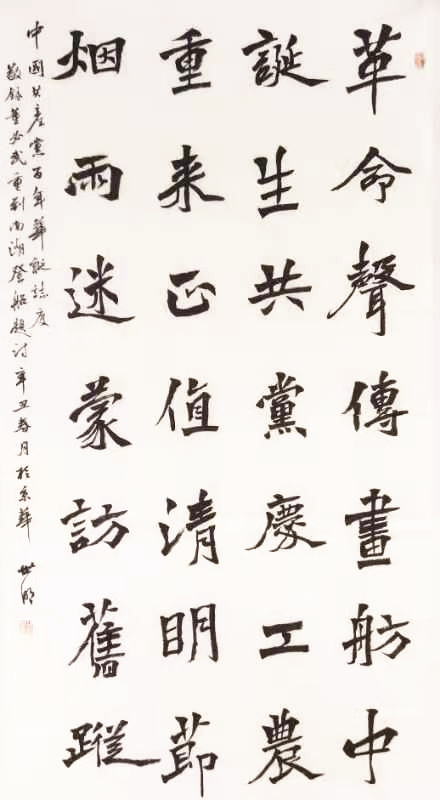 革命聲傳畫舫中
誕生共黨慶工農
重来正值清明莭
烟雨迷蒙訪舊蹤
中國共產黨百年華誕誌慶
敬錄董必武重到南湖登船題詩辛丑春月於京華